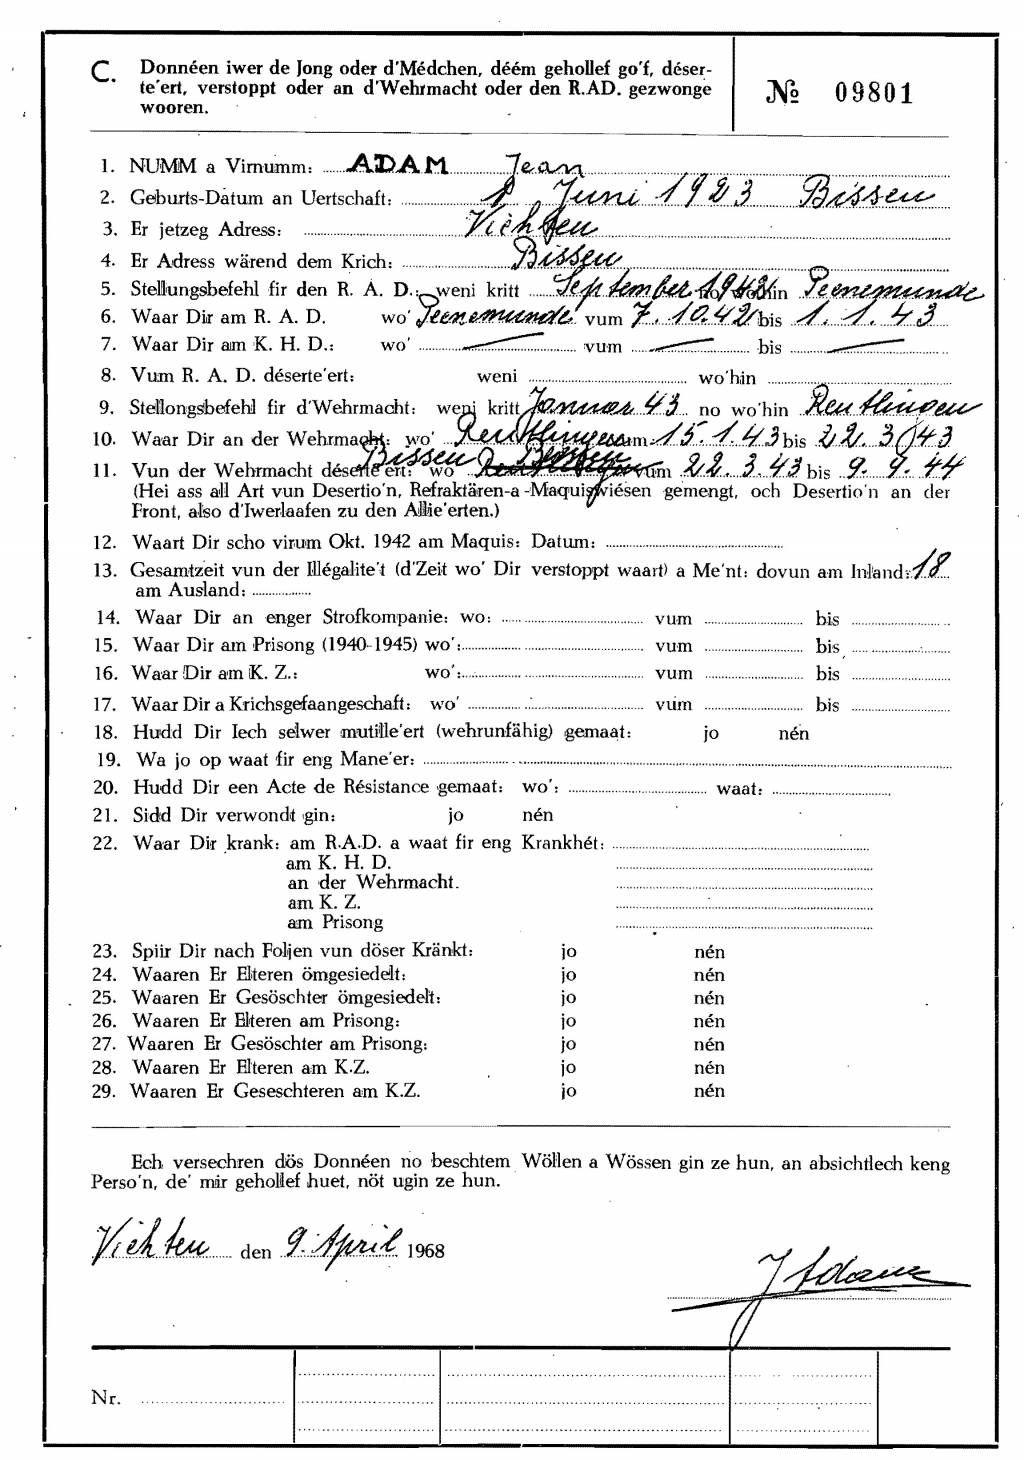 C. Donnéen iwer de Jong oder d'Médchen, déém gehollef go'f, déser-
te'ert, verstoppt oder an d'Wehrmacht oder den R.AD. gezwonge
wooren.
№ 09801
1. NUMM a Virnumm: ADAM Jean
2. Geburts-Datum an Uertschaft: 1 Juni 1923 Bissen
3. Er jetzeg Adress: Vichten
4. Er Adress wärend dem Krich: Bissen
5. Stellungsbefehl fir den R. A. D.: weni kritt September 1942 no wohin Peenemunde
6. Waar Dir am R. A. D. wo' Peenemunde vum 7. 10. 42 bis 1. 1. 43
7. Waar Dir am K. H. D.: wo' — vum — bis —
8. Vum R. A. D. déserte'ert: weni wo'hin
9. Stellongsbefehl fir d'Wehrmacht: weni kritt Januar 43 no wo'hin Reutlingen
10. Waar Dir an der Wehrmacht: wo' Reutlingen vum 15. 1. 43 bis 22. 3. 43
11. Vun der Wehrmacht déserte'ert: wo Bissen Bissen vum 22. 3. 43 bis 9. 9. 44
(Hei ass all Art vun Desertio'n, Refraktären-a-Maquiswiésen gemengt, och Desertio'n an der
Front, also d'Iwerlaafen zu den Allie'erten.)
12. Waart Dir scho virum Okt. 1942 am Maquis: Datum:
13. Gesamtzeit vun der Illégalite't (d'Zeit wo' Dir verstoppt waart) a Me'nt: dovun am Inland: 18
am Ausland:
14. Waar Dir an enger Strofkompanie: wo: vum bis
15. Waar Dir am Prisong (1940-1945) wo': vum bis
16. Waar Dir am K. Z.: wo': vum bis
17. Waar Dir a Krichsgefaangeschaft: wo' vum bis
18. Hudd Dir Iech selwer mutille'ert (wehrunfähig) gemaat: jo nén
19. Wa jo op waat fir eng Mane'er:
20. Hudd Dir een Acte de Résistance gemaat: wo': waat:
21. Sidd Dir verwondt gin: jo nén
22. Waar Dir krank: am R.A.D. a waat fir eng Krankhét:
am K. H. D.
an der Wehrmacht.
am K. Z.
am Prisong
23. Spiir Dir nach Foljen vun döser Kränkt: jo nén
24. Waaren Er Elteren ömgesiedelt: jo nén
25. Waaren Er Gesöschter ömgesiedelt: jo nén
26. Waaren Er Elteren am Prisong: jo nén
27. Waaren Er Gesöschter am Prisong: jo nén
28. Waaren Er Elteren am K.Z. jo nén
29. Waaren Er Geseschteren am K.Z. jo nén
Ech versechren dös Donnéen no beschtem Wöllen a Wössen gin ze hun, an absichtlech keng
Perso'n, de' mir gehollef huet, nöt ugin ze hun.
Vichten den 9. April 1968
J Adam
Nr.